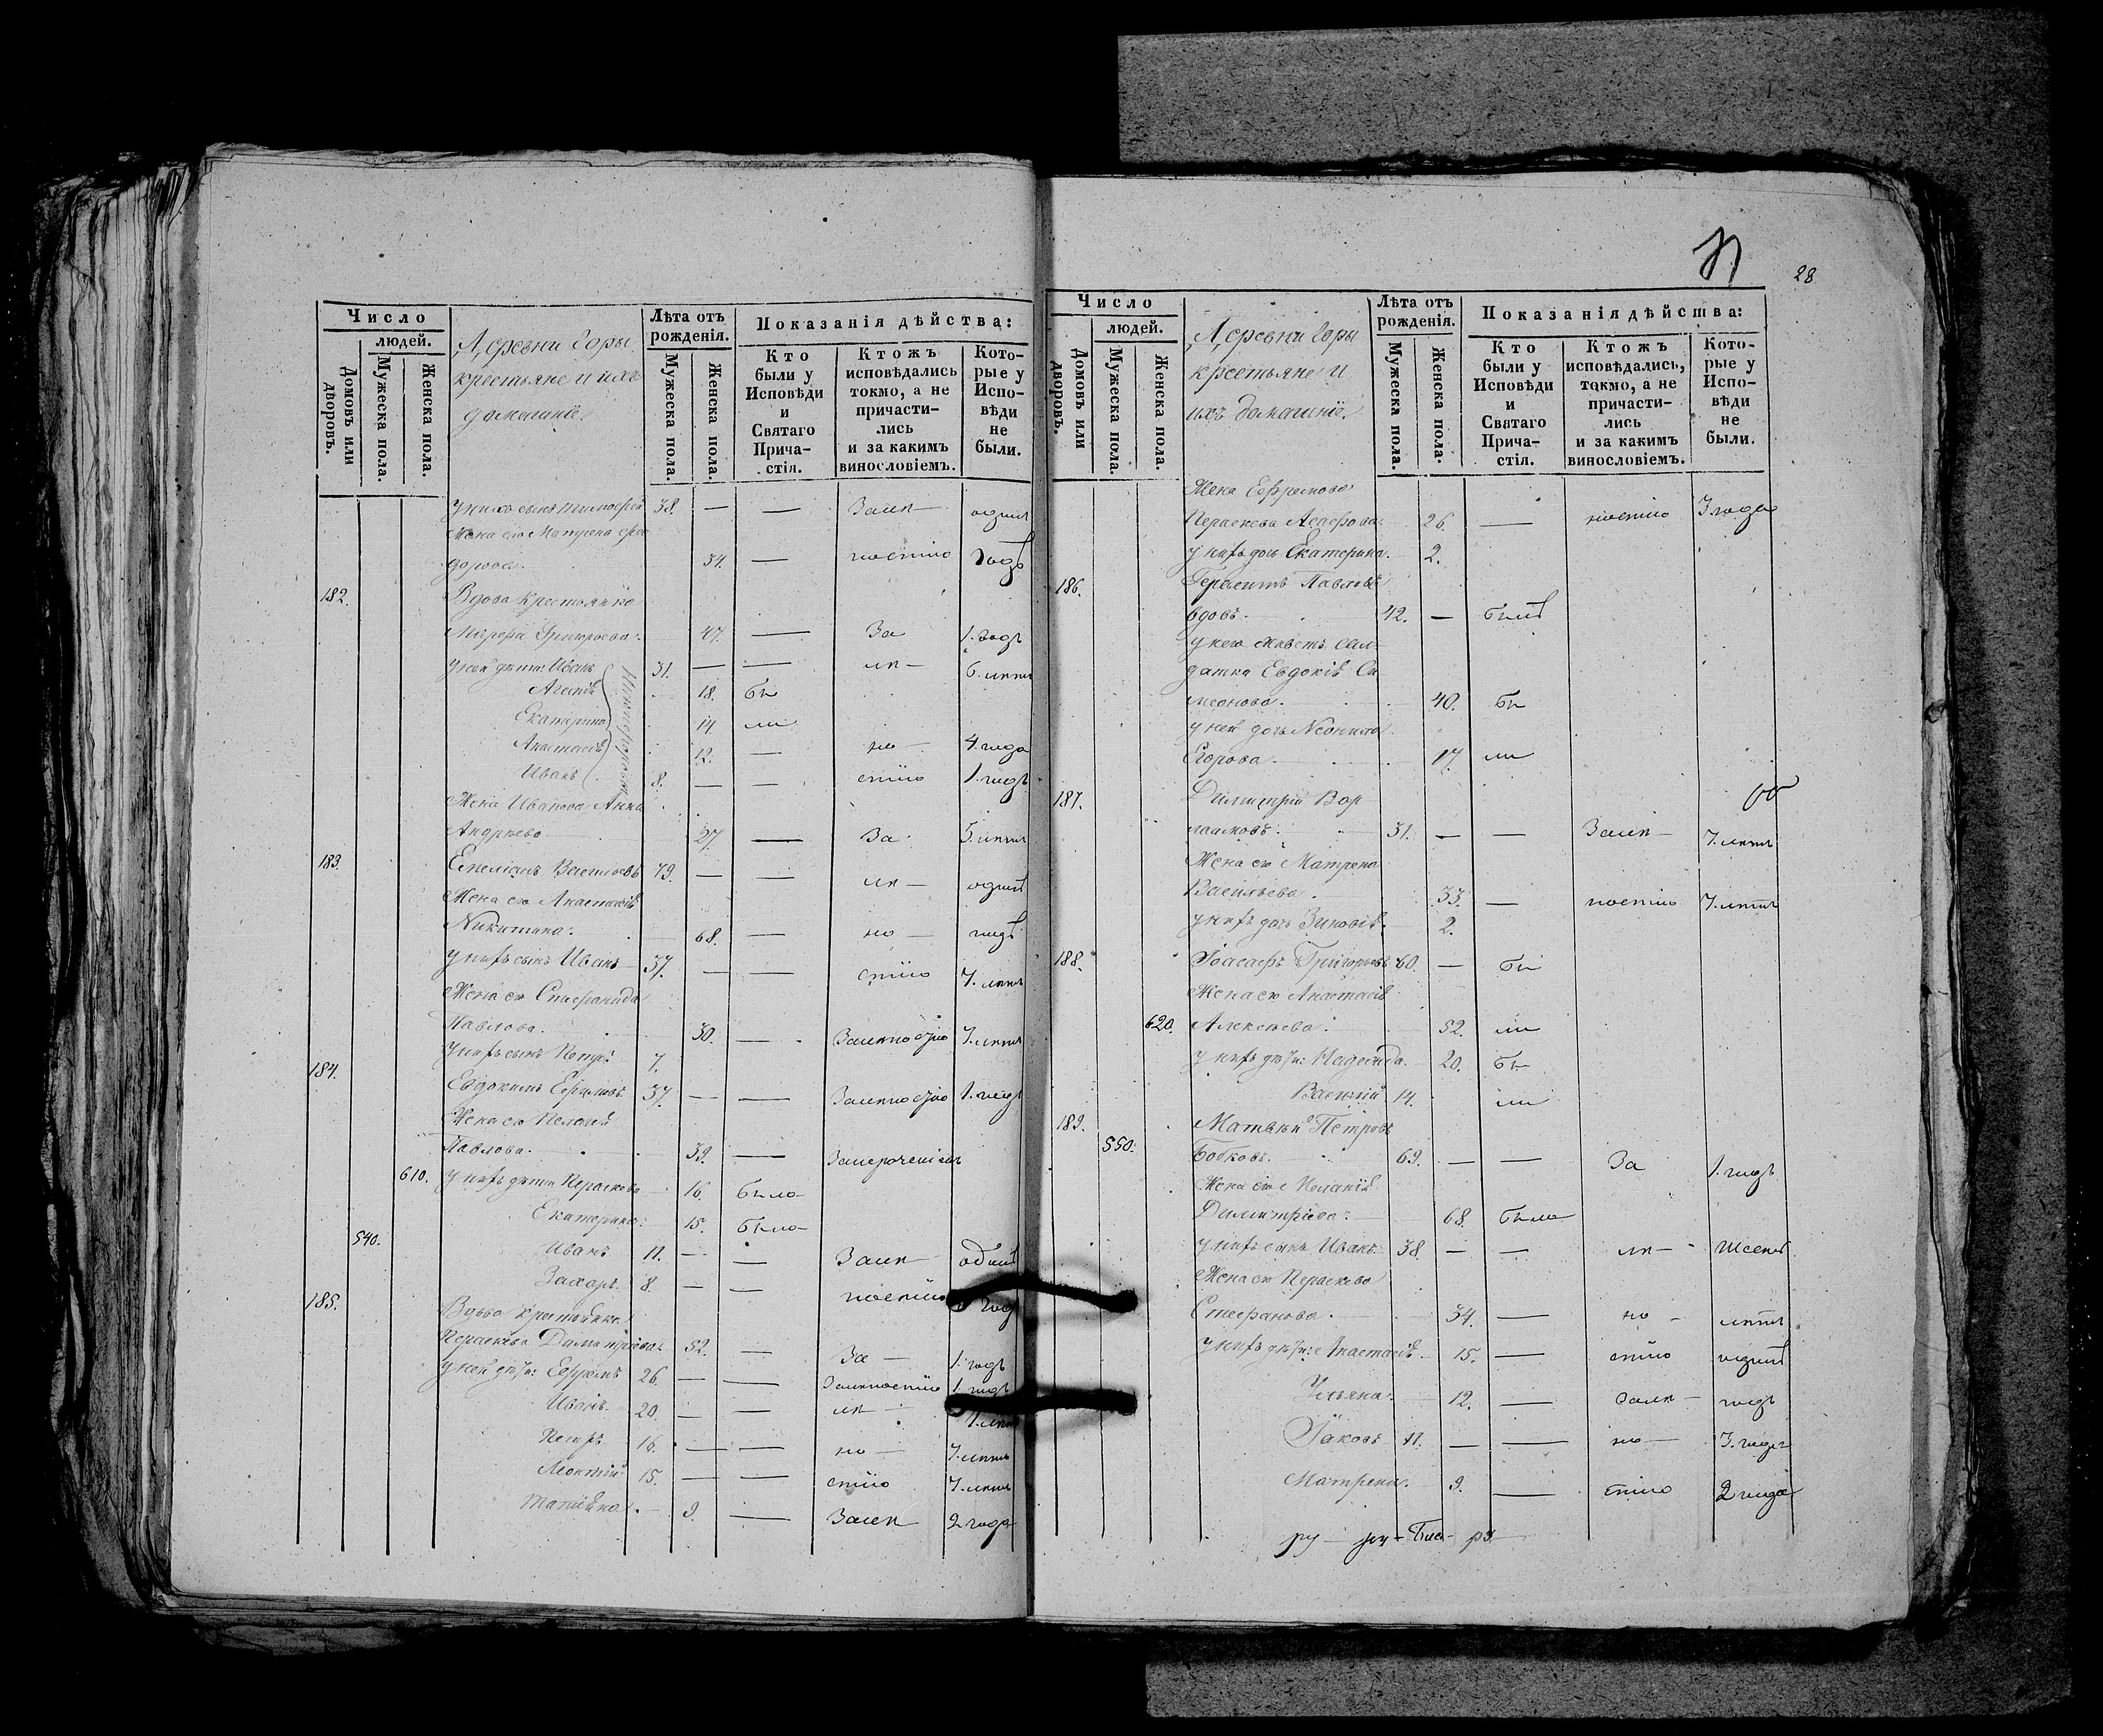 Число
людей.
Домовъ или дворовъ.
Мужеска пола.
Женска пола.
Деревни Горы
крестьяне и ихъ
домашніе.
Лѣта отъ рожденія.
Мужеска пола.
Женска пола.
Показанія дѣйства:
Кто были у Исповѣди и Святаго Прича- стія.
Ктожъ исповѣдались токмо, а не причасти- лись и за какимъ винословіемъ.
Кото- рые у Испо- вѣди не были.
у нихъ сынъ Тимофей 38. — — За лѣ- одинъ
Жена его Матрена Фео
дорова. 34. — ностію годъ
182. Вдова крестьянка
Григорьева. 47. — За 1. годъ
у ней дѣти: Иванъ 31. — — лѣ- 6. лѣтъ
18. Бы
Екатерина 14. ли
Анастасія 12. — но- 4. года
Иванъ 8. — — стію 1. годъ
Жена Иванова Анна
Андреева 27. — За 5. лѣтъ
183. Емеліанъ Васильевъ 79. — — лѣ- одинъ
Жена его Анастасія
Никитина. 68. — но- годъ
у нихъ сынъ Иванъ 37. — — стію 7. лѣтъ
Жена его Стефанида
Павлова. 30. — За лѣностію 7. лѣтъ
у нихъ сынъ Петръ 7.
184. Евдокимъ Ефимовъ 37. — — За лѣностію 1. годъ
Жена его Пелагія
Павлова. 39. —
610. у нихъ дѣти Параскева 16. Была
Екатерина. 15. Была
540. Иванъ 11. — — За лѣ- одинъ
Захаръ. 8. — — ностію годъ
185. Вдова крестьянка
Параскева Димитріева. 52. — За- 1. годъ
у ней дѣти: Ефремъ 26. — — За лѣностію 1. годъ
Иванъ. 20. — — лѣ- лѣтъ
Петръ 16. — — но- 7. лѣтъ
Леонтій 15. — — стію 7. лѣтъ
Татіана. 9. — За лѣ- 2 года
28
Число
людей.
Домовъ или дворовъ.
Мужеска пола.
Женска пола.
Деревни Горы
крестьяне и
ихъ домашніе.
Лѣта отъ рожденія.
Мужеска пола.
Женска пола.
Показанія дѣйства:
Кто были у Исповѣди и Святаго Прича- стія.
Ктожъ исповѣдались, токмо, а не причасти- лись и за какимъ винословіемъ.
Кото- рые у Испо- вѣди не были.
Жена Ефремова
Параскева Агафова. 26. — ностію 3 года
у нихъ дочь Екатерина. 2.
186. Павловъ
вдовъ. 42. — Былъ
у него невѣстк. сол-
датка Евдокія Си
меонова. 40. Бы
у ней дочь Неонила
Егорова. 17. ли
187. Димитрій Вар
лаамовъ. 31. — — За лѣ- 7. лѣтъ
Жена его Матрена
Васильева. 33. — ностію 7. лѣтъ
у нихъ дочь Зиновія. 2.
188. Іоасафъ Григорьевъ 60. — Бы
Жена его Анастасія
620. Алексѣева. 52. ли
у нихъ дѣти: Надежда. 20. Бы
Василій 14. ли
189. Матвѣй Петровъ
550. Бобковъ. 69. — — За 1. годъ
Жена его Меланія
Димитріева. 68. Была
у нихъ сынъ Иванъ 38 — — лѣ- Шесть
Жена его Параскева
Стефанова. 34. — но- лѣтъ
у нихъ дѣти: Анастасія. 15. — стію одинъ
Ульяна. 12. — За лѣ- годъ
Іаковъ 11. — — но- 3. года
Матрена. 9. — стію 2 года